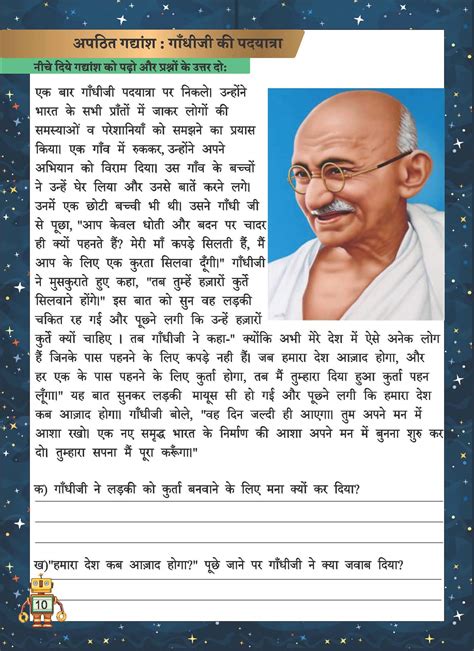 अपठित गद्यांश : गाँधीजी की पदयात्रा
नीचे दिये गद्यांश को पढ़ो और प्रश्नों के उत्तर दो:
एक बार गाँधीजी पदयात्रा पर निकले। उन्होंने
भारत के सभी प्राँतों में जाकर लोगों की
समस्याओं व परेशानियाँ को समझने का प्रयास
किया। एक गाँव में रुककर, उन्होंने अपने
अभियान को विराम दिया। उस गाँव के बच्चों
ने उन्हें घेर लिया और उनसे बातें करने लगे।
उनमें एक छोटी बच्ची भी थी। उसने गाँधी जी
से पूछा, "आप केवल धोती और बदन पर चादर
ही क्यों पहनते हैं? मेरी माँ कपड़े सिलती हैं, मैं
आप के लिए एक कुरता सिलवा दूँगी।" गाँधीजी
ने मुसकुराते हुए कहा, "तब तुम्हें हज़ारों कुर्ते
सिलवाने होंगे।" इस बात को सुन वह लड़की
चकित रह गई और पूछने लगी कि उन्हें हज़ारों
कुर्ते क्यों चाहिए । तब गाँधीजी ने कहा-" क्योंकि अभी मेरे देश में ऐसे अनेक लोग
हैं जिनके पास पहनने के लिए कपड़े नही हैं। जब हमारा देश आज़ाद होगा, और
हर एक के पास पहनने के लिए कुर्ता होगा, तब मैं तुम्हारा दिया हुआ कुर्ता पहन
लूँगा।" यह बात सुनकर लड़की मायूस सी हो गई और पूछने लगी कि हमारा देश
कब आज़ाद होगा। गाँधीजी बोले, "वह दिन जल्दी ही आएगा। तुम अपने मन में
आशा रखो। एक नए समृद्ध भारत के निर्माण की आशा अपने मन में बुनना शुरु कर
दो। तुम्हारा सपना मैं पूरा करूँगा।"
क) गाँधीजी ने लड़की को कुर्ता बनवाने के लिए मना क्यों कर दिया?
ख)"हमारा देश कब आज़ाद होगा?" पूछे जाने पर गाँधीजी ने क्या जवाब दिया?
10